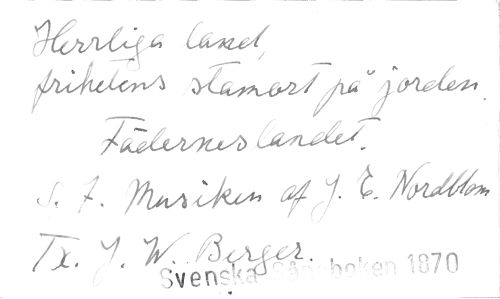 Herrliga land,
frihetens stamort på jorden.
Fäderneslandet.
s. f. Musiken af J. E. Nordblom
Tx. J. W. Berger.
Svenska Sångboken 1870